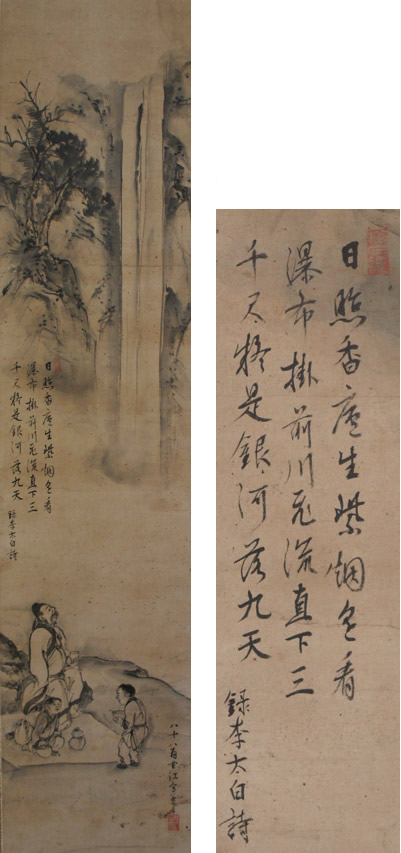 日照香廬生紫烟遙看
瀑布掛前川飛流直下三
千尺疑是銀河落九天
録李太白詩
八十八翁
日照香廬生紫烟遙看
瀑布掛前川飛流直下三
千尺疑是銀河落九天
録李太白詩